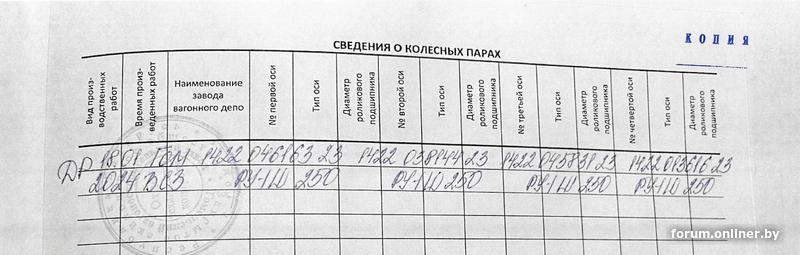 КОПИЯ
СВЕДЕНИЯ О КОЛЕСНЫХ ПАРАХ
Вид произ-
водственных
работ
Время произ-
веденных работ
Наименование
завода
вагонного депо
№ первой оси
Тип оси
Диаметр
роликового
подшипника
№ второй оси
Тип оси
Диаметр
роликового
подшипника
№ третьей оси
Тип оси
Диаметр
роликового
подшипника
№ четвертой оси
Тип оси
Диаметр
роликового
подшипника
ДР 18.01 Гом 1422 046163 23 1422 038144 23 1422 045831 23 1422 013616 23
2024 ВСЗ РУ-1Ш 250 РУ-1Ш 250 РУ-1Ш 250 РУ-1Ш 250
forum.onliner.by